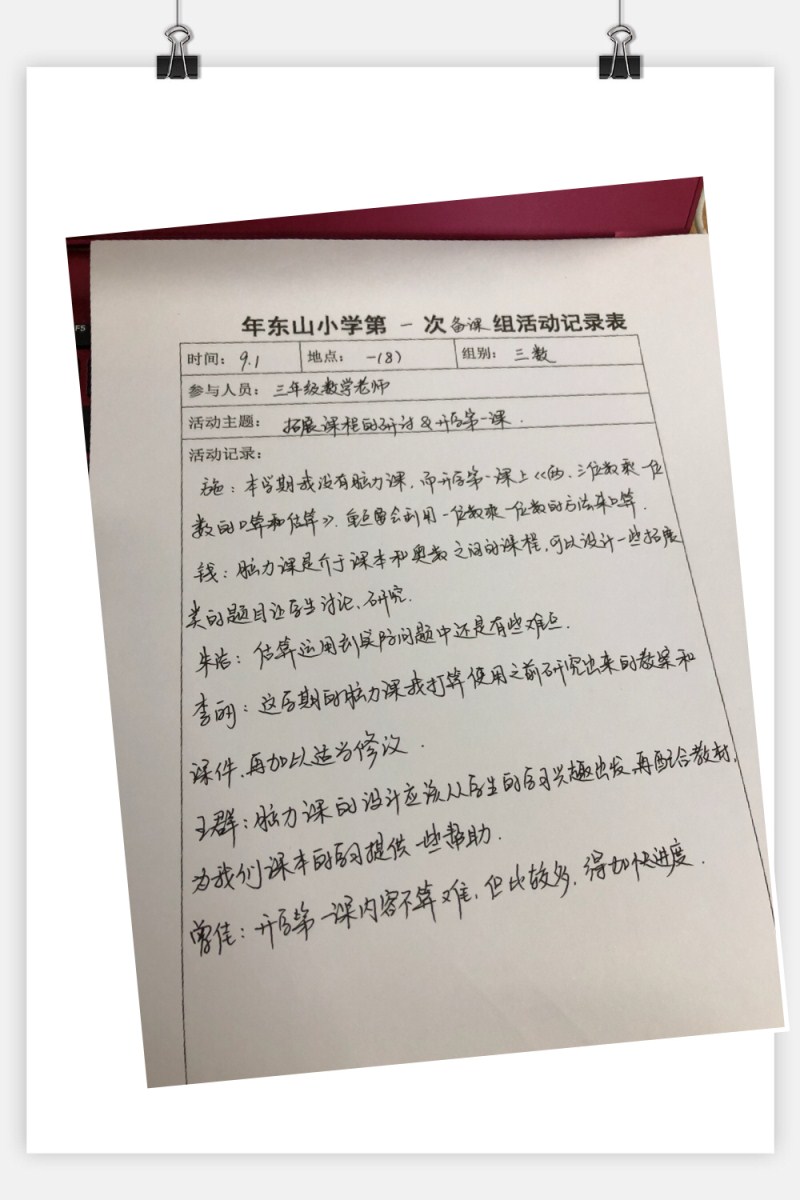 年东山小学第一次备课组活动记录表
时间：9.1 地点：一(8) 组别：三数
参与人员：三年级数学老师
活动主题：拓展课程的研讨&开学第一课.
活动记录：
施：本学期我没有脑力课，而开学第一课上《两、三位数乘一位
数的口算和估算》，重点要会利用一位数乘一位数的方法来口算.
钱：脑力课是介于课本和奥数之间的课程，可以设计一些拓展
类的题目让学生讨论、研究.
朱洁：估算运用到实际问题中还是有些难点.
李明：这学期的脑力课我打算使用之前研究出来的教案和
课件，再加以适当修改.
王群：脑力课的设计应该从学生的学习兴趣出发，再配合教材，
为我们课本的学习提供一些帮助.
曾佳：开学第一课内容不算难，但比较多，得加快进度.
FS